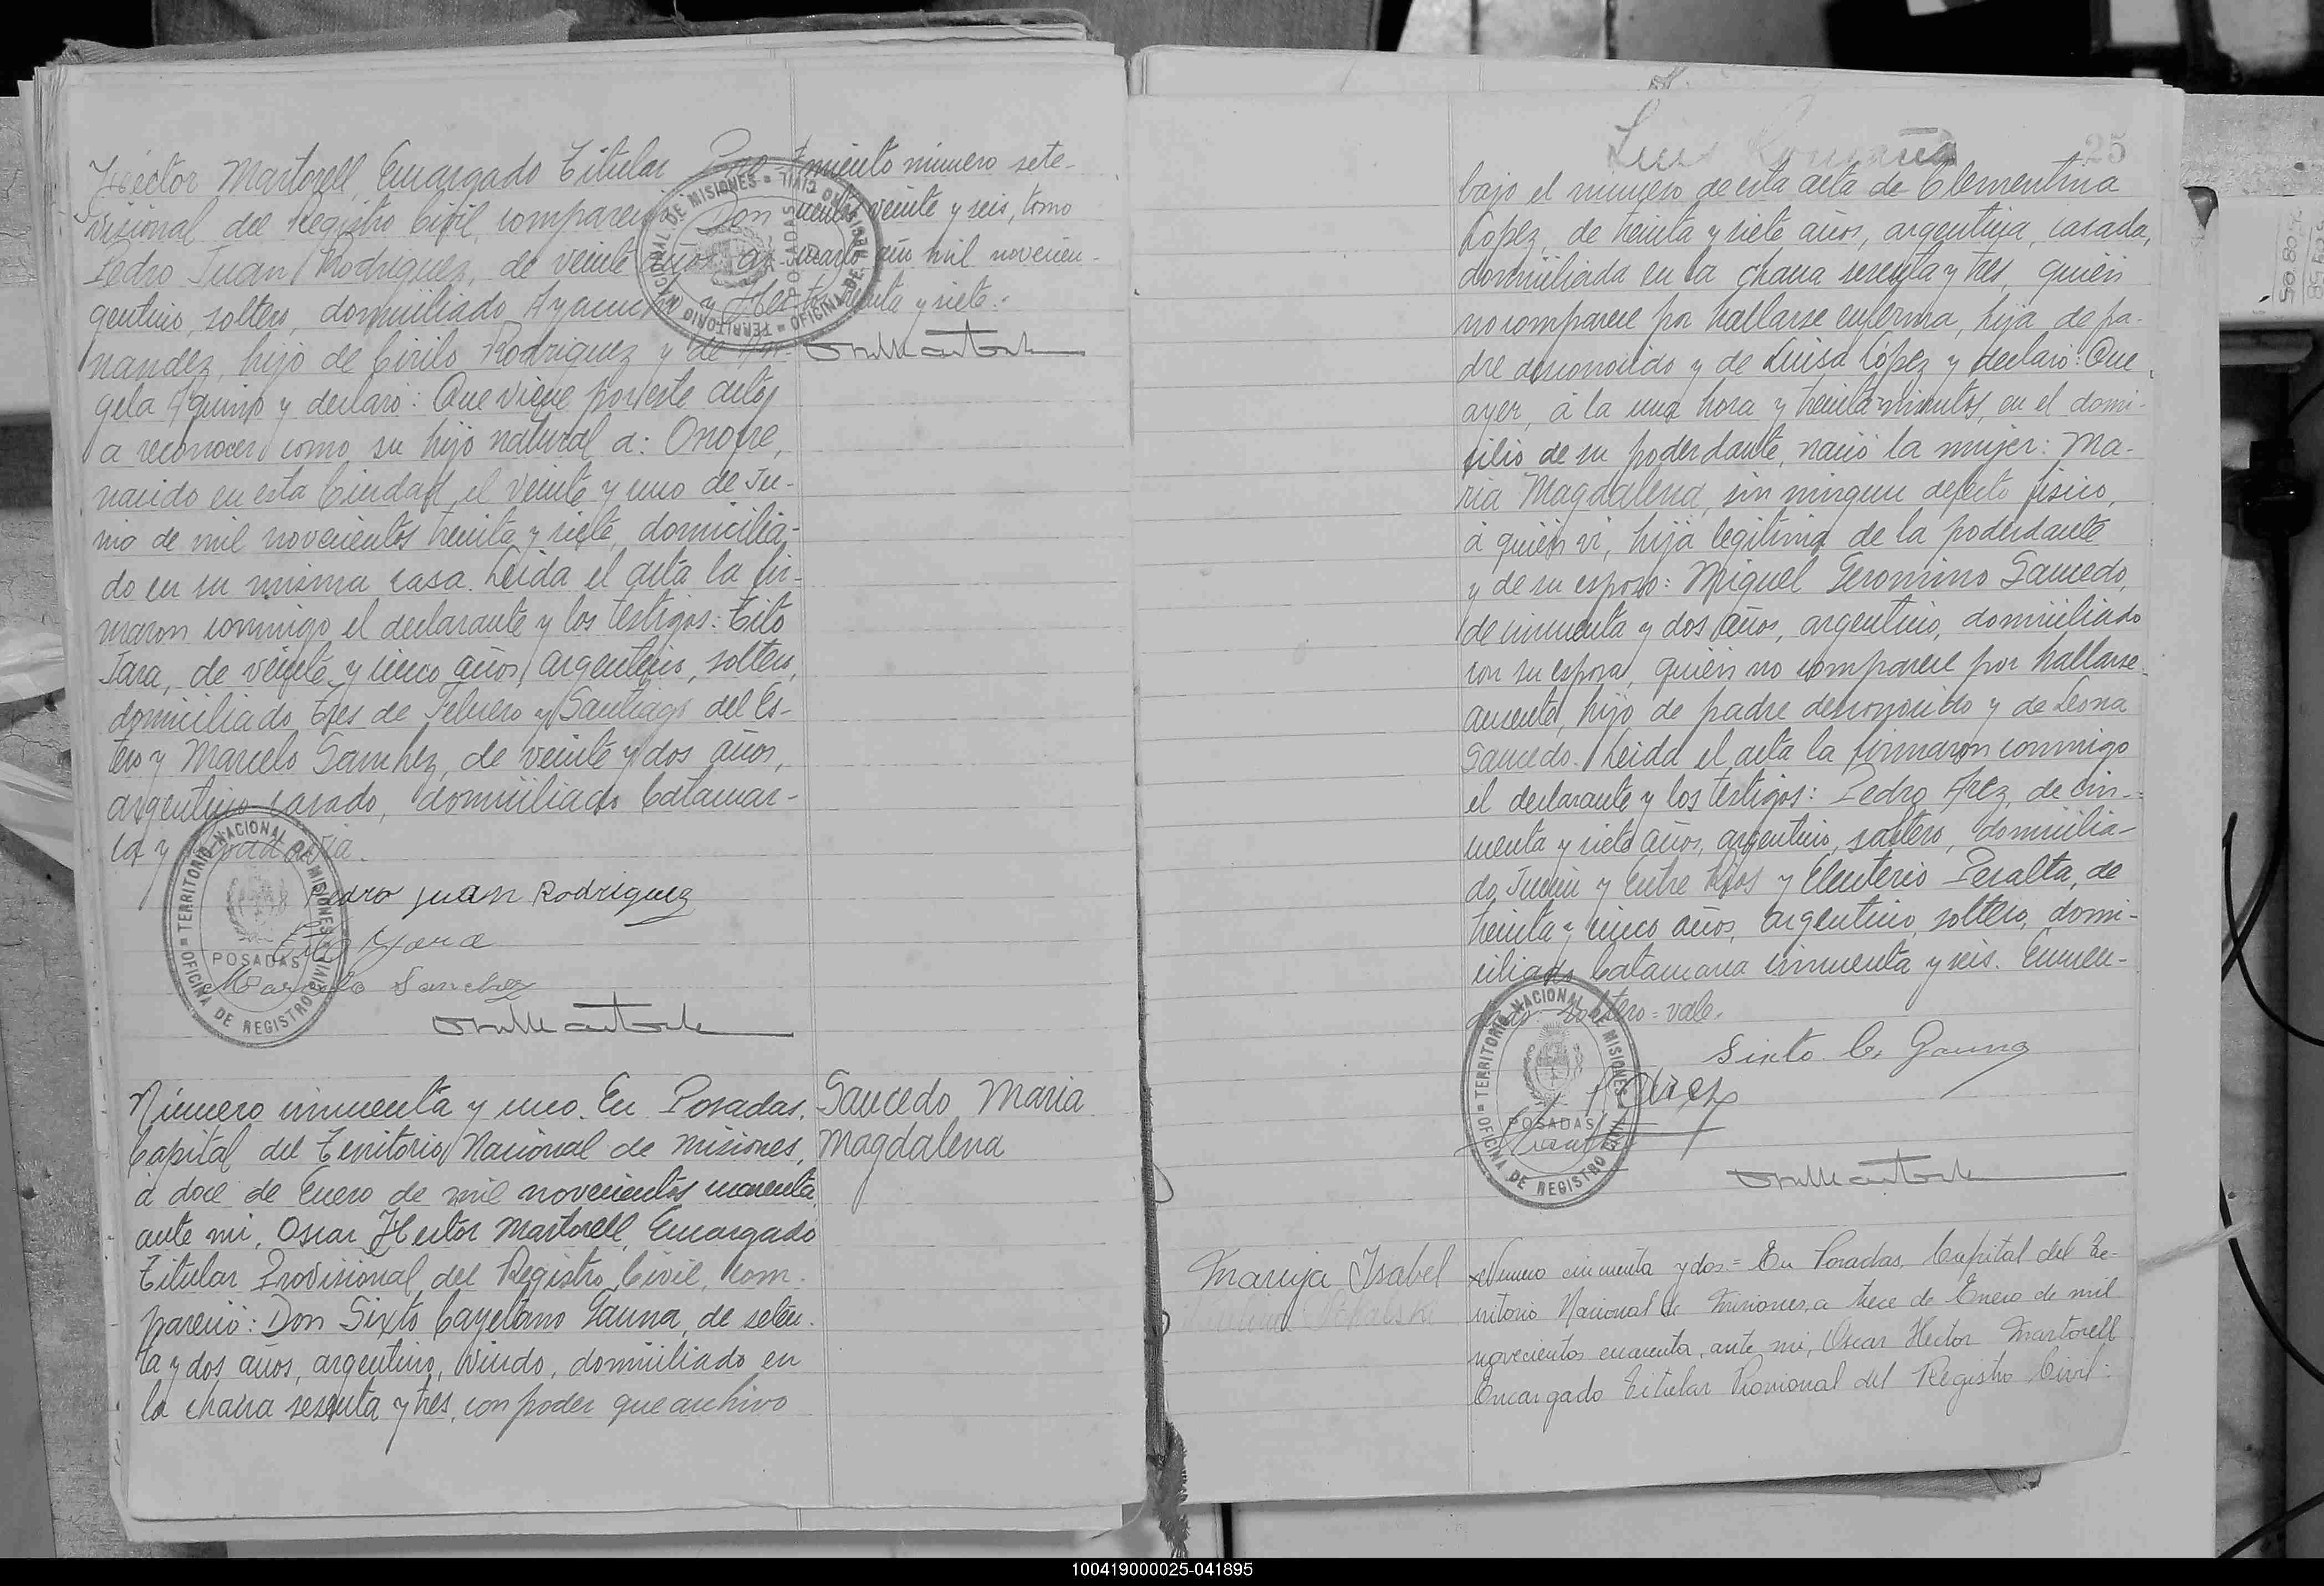 Héctor Martorell, Encargado Titular Pro-
visional del Registro Civil, compareció: Don
Pedro Juan Rodriguez, de veinte años, ar-
gentino, soltero, domiciliado Ayacucho y Her-
nandez, hijo de Cirilo Rodriguez y de An-
gela Aquino y declaró: Que viene por este acto,
a reconocer como su hijo natural a: Onofre,
nacido en esta Ciudad, el veinte y uno de Ju-
nio de mil novecientos treinta y siete, domicilia-
do en su misma casa. Leida el acta la fir-
maron conmigo el declarante y los testigos: Tito
Jara, de veinte y cinco años, argentino, soltero,
domiciliado Tres de Febrero y Santiago del Es-
tero y Marcelo Sanchez, de veinte y dos años,
argentino, casado, domiciliado Catamar-
ca y
Pedro Juan Rodriguez
Tito Yara
Marcelo Sanchez
miento número sete-
cientos veinte y seis, tomo
cuarto año mil novecien-
tos treinta y siete.=
TERRITORIO NACIONAL DE MISIONES = OFICINA DE REGISTRO CIVIL =
POSADAS
TERRITORIO NACIONAL DE MISIONES = OFICINA DE REGISTRO CIVIL =
POSADAS
Número cincuenta y uno. En Posadas,
Capital del Territorio Nacional de Misiones,
á doce de Enero de mil novecientos cuarenta,
ante mi, Oscar Hector Martorell, Encargado
Titular Provisional del Registro Civil, com-
pareció: Don Sixto Cayetano Gauna, de seten-
ta y dos años, argentino, viudo, domiciliado en
la chacra sesenta y tres, con poder que archivo
Saucedo Maria
Magdalena
25
bajo el número de esta acta de Clementina
Lopez, de treinta y siete años, argentina, casada,
domiciliada en la chacra sesenta y tres, quién
no comparece por hallarse enferma, hija de pa-
dre desconocido y de Luisa López y declaró: Que
ayer, á la una hora y treinta minutos, en el domi-
cilio de su poderdante, nació la mujer: Ma-
ria Magdalena, sin ningun defecto fisico,
á quién vi, hija legitima de la poderdante
y de su esposo: Miguel Geronimo Saucedo,
de cincuenta y dos años, argentino, domiciliado
con su esposa, quién no comparece por hallarse
ausente, hijo de padre desconocido y de Leona
Saucedo. Leida el acta la firmaron conmigo
el declarante y los testigos: Pedro Arez, de cin-
cuenta y siete años, argentino, soltero, domicilia-
do Junin y Entre Rios y Eleuterio Peralta, de
treinta y cinco años, argentino, soltero, domi-
ciliado Catamarca cincuenta y seis. Enmen-
dado: soltero = vale.
Sixto C. Gauna
TERRITORIO NACIONAL DE MISIONES = OFICINA DE REGISTRO CIVIL =
POSADAS
Maruja Isabel
Número cincuenta y dos.= En Posadas, Capital del Te-
rritorio Nacional de Misiones, a trece de Enero de mil
novecientos cuarenta, ante mi, Oscar Hector Martorell
Encargado Titular Provisional del Registro Civil:
100419000025-041895